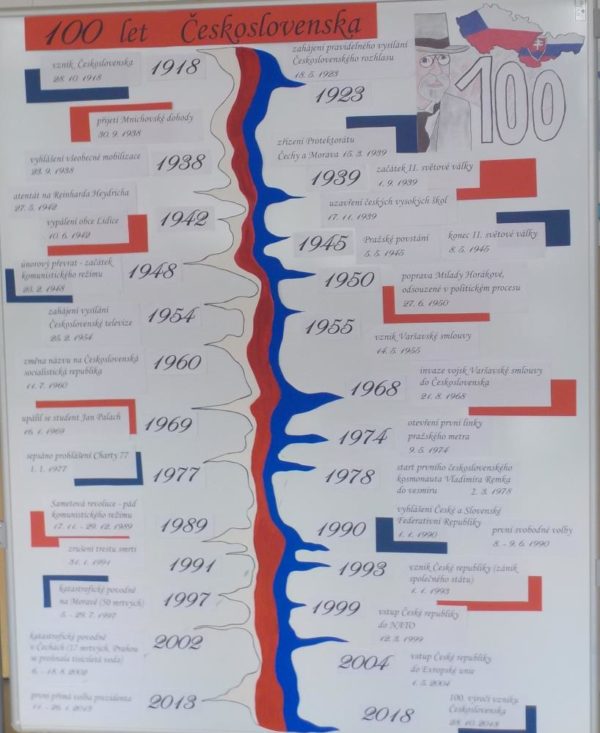 100 let Československa
100
vznik Československa
28. 10. 1918
1918
zahájení pravidelného vysílání
Československého rozhlasu
18. 5. 1923
1923
přijetí Mnichovské dohody
30. 9. 1938
vyhlášení všeobecné mobilizace
23. 9. 1938
1938
zřízení Protektorátu
Čechy a Morava 15. 3. 1939
1939
začátek II. světové války
1. 9. 1939
uzavření českých vysokých škol
17. 11. 1939
atentát na Reinharda Heydricha
27. 5. 1942
vypálení obce Lidice
10. 6. 1942
1942
1945
Pražské povstání
5. 5. 1945
konec II. světové války
8. 5. 1945
únorový převrat - začátek
komunistického režimu
25. 2. 1948
1948
1950
poprava Milady Horákové,
odsouzené v politickém procesu
27. 6. 1950
zahájení vysílání
Československé televize
25. 2. 1954
1954
1955
vznik Varšavské smlouvy
14. 5. 1955
změna názvu na Československá
socialistická republika
11. 7. 1960
1960
1968
invaze vojsk Varšavské smlouvy
do Československa
21. 8. 1968
upálil se student Jan Palach
16. 1. 1969
1969
1974
otevření první linky
pražského metra
9. 5. 1974
sepsáno prohlášení Charty 77
1. 1. 1977
1977
1978
start prvního československého
kosmonauta Vladimíra Remka
do vesmíru 2. 3. 1978
Sametová revoluce - pád
komunistického režimu
17. 11. - 29. 12. 1989
1989
1990
vyhlášení České a Slovenské
Federativní Republiky
1. 1. 1990
první svobodné volby
8. - 9. 6. 1990
zrušení trestu smrti
31. 1. 1991
1991
1993
vznik České republiky (zánik
společného státu)
1. 1. 1993
katastrofické povodně
na Moravě (50 mrtvých)
5. - 29. 7. 1997
1997
1999
vstup České republiky
do NATO
12. 3. 1999
katastrofické povodně
v Čechách (17 mrtvých, Prahou
se prohnala tisíciletá voda)
6. - 18. 8. 2002
2002
2004
vstup České republiky
do Evropské unie
1. 5. 2004
první přímá volba prezidenta
11 - 26. 1. 2013
2013
2018
100. výročí vzniku
Československa
28. 10. 2018